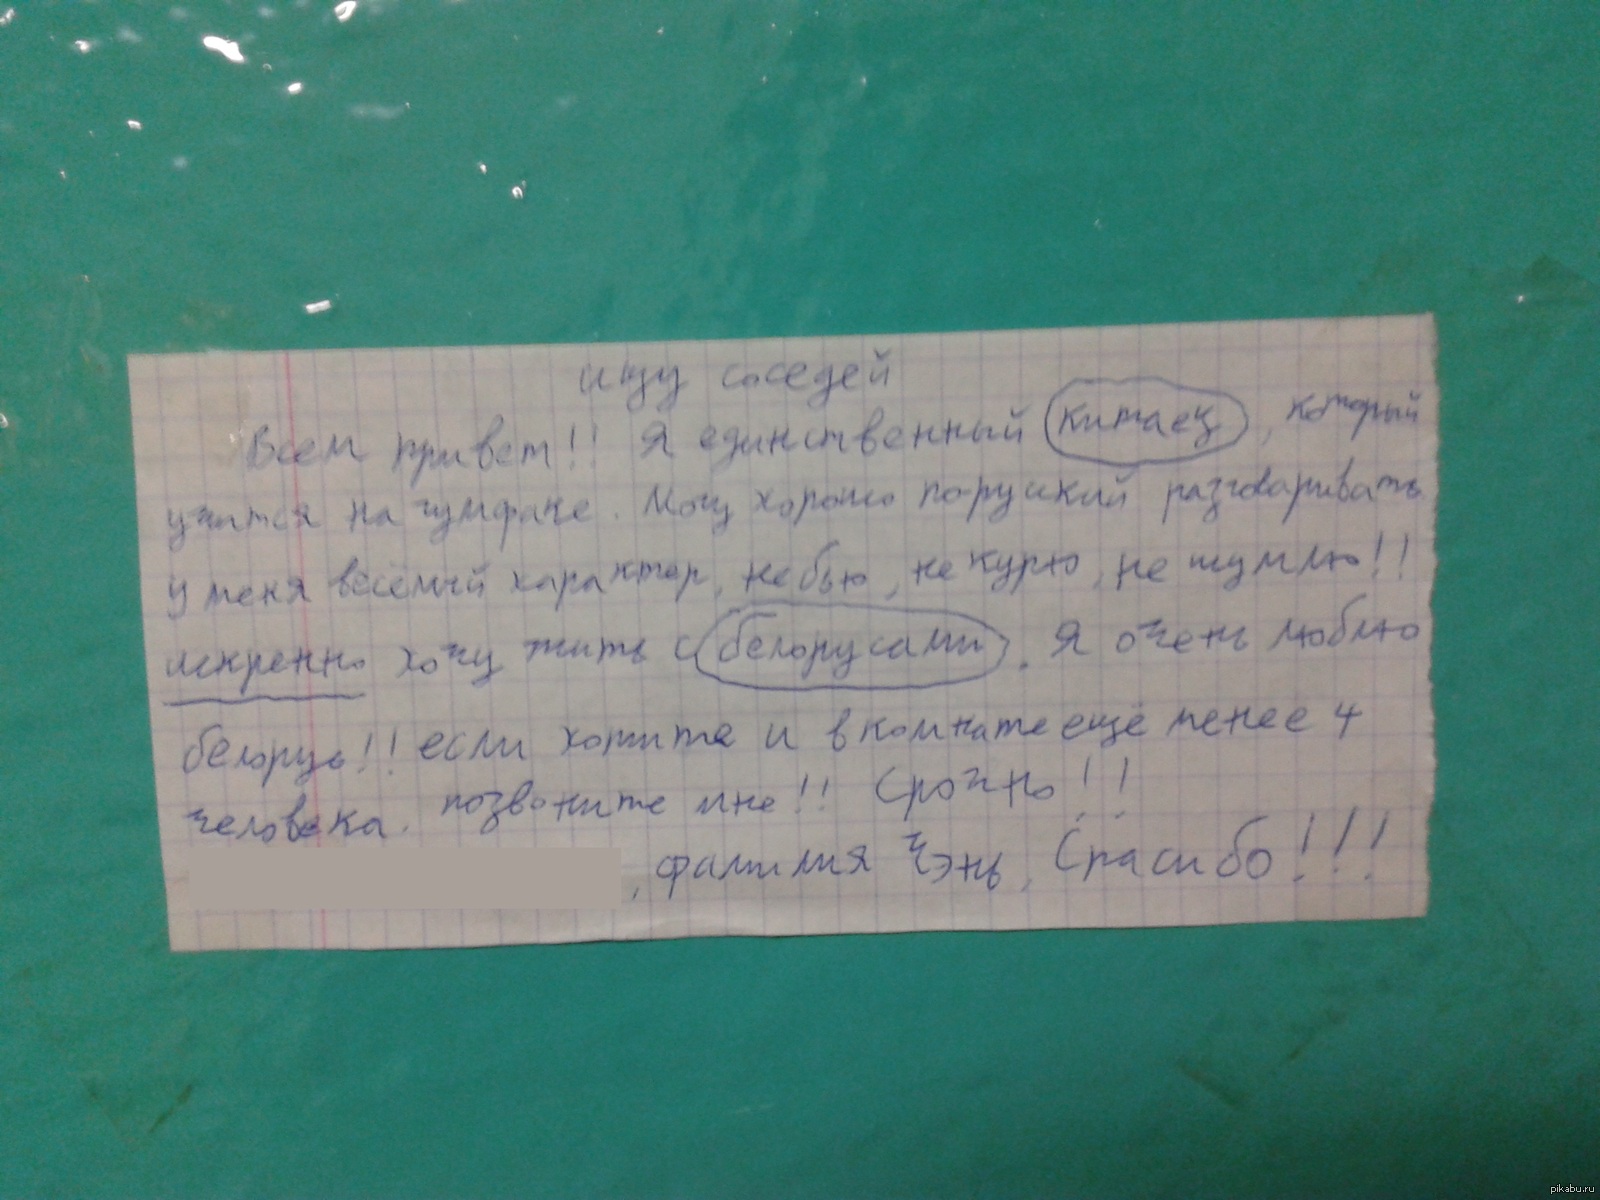 ищу соседей
Всем привет!! Я единственный китаец, который
учится на гумфаке. Могу хорошо по-руский разговаривать
у меня весёлый характер, не бью, не курю, не шумлю!!
искренно хочу жить с белорусами. Я очень люблю
белорус!! если хотите и в комнате ещё менее 4
человека. позвоните мне!! Срочно!!
, фамилия Чэнь, Спасибо!!!
pikabu.ru